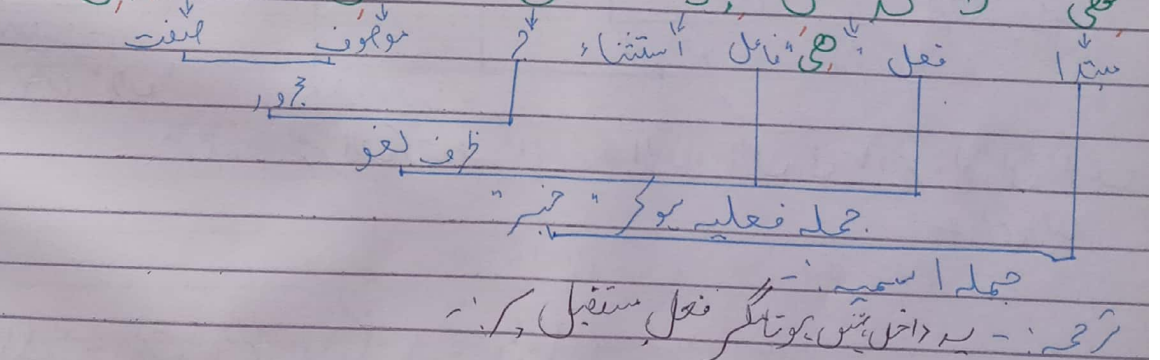 ھی
مبتدا فعل "ھی" فاعل استثناء ج موصوف صفت
مجرور
ظرف لغو
جملہ فعلیہ ہوکر "خبر"
جملہ اسمیہ :-
ترجمہ :- یہ داخل نہیں ہوتا مگر فعل مستقبل پر :-